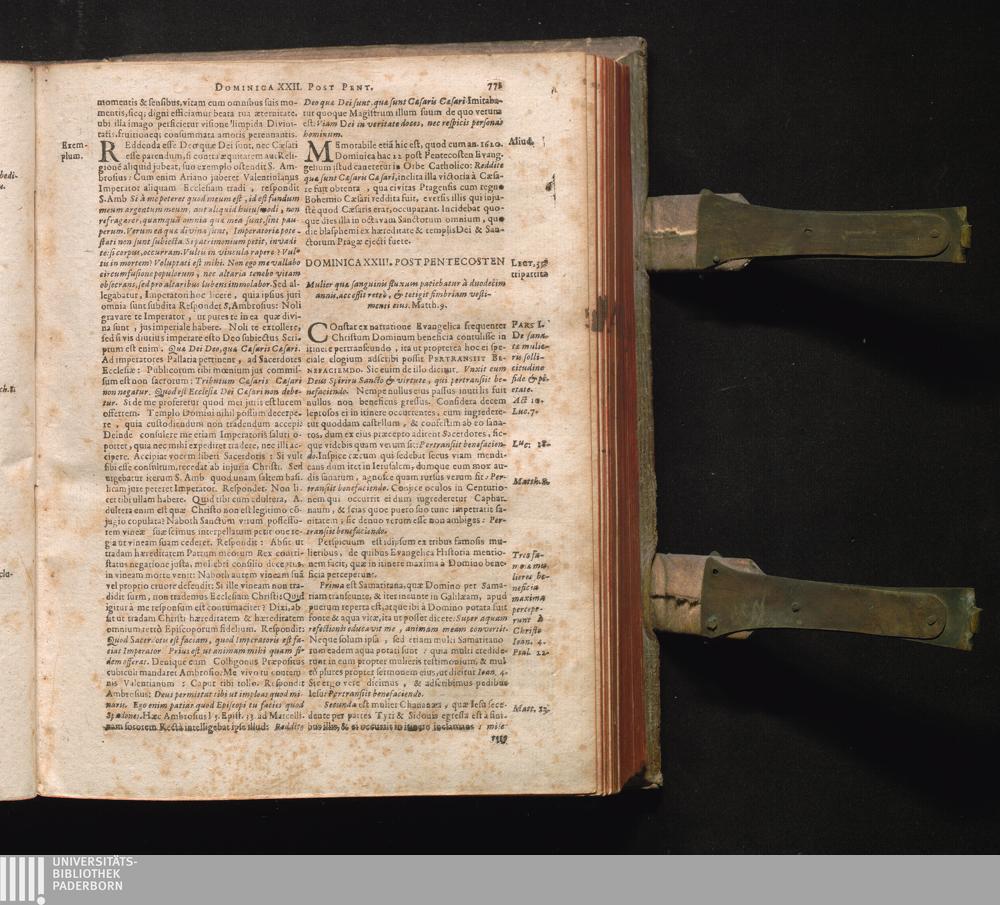 DOMINICA XXII. POST PENT. 771
momentis & sensibus, vitam cum omnibus suis mo-
mentis, sicq; digni efficiamur beata tua æternitate.
ubi illa imago perficietur visione limpida Divini-
tatis, fruitioneq; consummata amoris perennantis.
Exem-
plum.
REddenda esse Deo quæ Dei sunt, nec Cæsari
esse parendum, si contra æquitatem aut Reli-
gionē aliquid jubeat, suo exemplo ostendit S. Am-
brosius: Cum enim Ariano juberet Valentinianus
Imperator aliquam Ecclesiam tradi, respondit
S. Amb Si à me peteret quod meum est, id est fundum
meum argentum meum, aut aliquid huiusmodi, non
refragarer, quamquā omnia quæ mea sunt, sint pau-
perum. Verum ea quæ divina sunt, Imperatoriæ pote-
stati non sunt subiecta. Si patrimonium petit, invadi
te: si corpus, occurram. Vultis in vincula rapere? Vul-
tis in mortem? Voluptati est mihi. Non ego me vallabo
circumfusione populorum, nec altaria tenebo vitam
obsecrans, sed pro altaribus lubens immolabor. Sed al-
legabatur, Imperatori hoc licere, quia ipsius juri
omnia sunt subdita Respondet S. Ambrosius: Noli
gravare te Imperator, ut putes te in ea quæ divi-
na sunt, jus imperiale habere. Noli te extollere,
sed si vis diutius imperare esto Deo subiectus Scri-
ptum est enim. Quæ Dei Deo, quæ Cæsaris Cæsari.
Ad imperatores Pallatia pertinent, ad Sacerdotes
Ecclesiæ: Publicorum tibi mœnium jus commis-
sum est non sacrorum: Tributum Cæsaris Cæsari
non negatur. Quod est Ecclesiæ Dei Cæsari non debe-
tur. Si de me proferetur quod mei juris est lucem
offerrem. Templo Domini nihil possum decerpe-
re, quia custodiendum non tradendum accepi:
Deinde consulere me etiam Imperatoris saluti o-
portet, quia nec mihi expediret tradere, nec illi ac-
cipere. Accipiat vocem liberi Sacerdotis: Si vult
sibi esse consultum, recedat ab injuria Christi. Sed
urgebatur iterum S. Amb quod unam saltem basi-
licam jure peteret Imperator. Respondet. Non li-
cet tibi ullam habere. Quid tibi cum adultera, A-
dultera enim est quæ Christo non est legitimo cō-
jugio copulata? Naboth Sanctum virum possesso-
rem vineæ suæ scimus interpellatum petitione re-
ga ut vineam suam cederet. Respondit: Absit ut
tradam hæreditatem Patrum meorum Rex contri-
status negatione justa, mol ebri consilio deceptus,
in vineam morte venit: Naboth autem vineam suā
vel proprio cruore defendit: Si ille vineam non tra-
didit suam, non trademus Ecclesiam Christi: Quid
igitur à me responsum est contumaciter? Dixi, ab-
sit ut tradam Christi hæreditatem & hæreditatem
omnium retrò Episcoporum fidelium. Respondit:
Quod Sacerdotis est faciam, quod Imperatoris est fa-
ciat Imperator Prius est ut animam mihi quam fi-
dem offerat. Denique cum Colligonus Præpositus
cubiculi mandaret Ambrosio: Me vivo tu contem
nis Valentianum: Caput tibi tollo. Respondit
Ambrosius: Deus permittat tibi ut impleas quod mi-
naris. Ego enim patiar quod Episcopi tu facies quod
Spadones. Hæc Ambrosius l 5. Epist. 33. ad Marcelli-
nam sororem Rectà intelligebat ipse illud: Reddite
Deo quæ Dei sunt, quæ sunt Cæsaris Cæsari Imitaba-
tur quoque Magistrum illum suum de quo verum
est: Viam Dei in veritate doces, nec respicis personas
hominum.
Aliud.
MEmorabile etiā hic est, quod cum an. 1620.
Dominica hac 22 post Pentecosten Evang-
gelium istud caneretur in Orbe Catholico: Reddite
quæ sunt Cæsaris Cæsari, inclita illa victoria à Cæsa-
re fuit obtenta, qua civitas Pragensis cum regno
Bohemiæ Cæsari reddita fuit, eversis illis qui inju-
stè quod Cæsaris erat, occuparant. Incidebat quo-
que dies illa in octavam Sanctorum omnium, quo
die blasphemi ex hæreditate & templis Dei & San-
ctorum Pragæ ejecti fuere.
DOMINICA XXIII. POST PENTECOSTEN
LECT.
tripartita
Mulier quæ sanguinis fluxum patiebatur à duodecim
annis, accessit retrò, & tetigit fimbriam vesti-
menti eius. Matth. 9.
COnstat ex narratione Evangelica frequenter
Christum Dominum beneficia contulisse in
itinere pertranseundo, ita ut propterea hoc ei spe-
ciale elogium adscribi possit PERTRANSIIT BE-
NEFACIENDO. Sic enim de illo dicitur. Vnxit eum
Deus Spiritu Sancto & virtute, qui pertransiit be-
nefaciendo. Nempe nullus eius passus inutilis fuit
nullus non beneficus gressus. Considera decem
leprosos ei in itinere occurrentes, cum ingredere-
tur quoddam castellum, & confestim ab eo sana-
tos, dum ex eius præcepto adirent Sacerdotes, sic-
que videbis quam verum sit: Pertransiit benefacien-
do. Inspice cæcum qui sedebat secus viam mendi-
cans dum itet in Ierusalem, dumque eum mox au-
dis sanatum, agnosce quam rursus verum sit: Per-
transiit benefaciendo. Conjice oculos in Centurio-
nem qui occurrit ei dum ingrederetur Caphar-
naum, & scias quoe puero suo tunc impetratit sa-
nitatem, sic denuo verum esse non ambiges: Per-
transiit benefaciendo.
Perspicuum est idipsum ex tribus famosis mu-
lieribus, de quibus Evangelica Historia mentio-
nem facit, quæ in itinere maxima à Domino bene-
ficia perceperunt.
Prima est Samaritana, quæ Domino per Sama-
riam transeunte, & iter ineunte in Galilæam, apud
puteum reperta est, atque ibi à Domino potata fuit
fonte & aqua vitæ, ita ut posset dicere: Super aquam
refectionis educavit me, animam meam convertit.
Neque solum ipsa, sed etiam multi Samaritano
rum eadem aqua potati sunt: quia multi credide-
runt in eum propter mulieris testimonium, & mul
tò plures propter sermonem eius, ut dicitur Ioan. 4.
Sic ergo vere dicimus, & adscribimus pedibus
Iesu: Pertransiit benefaciendo.
Secunda est mulier Chananæa, quæ Iesu sece-
dente per partes Tyri & Sidonis egressa est à fini-
bus illis, & ei occurrit in itinere inclamans: mise-
PARS I.
De sana-
ta mulie-
ris solli-
citudine
fide & pi-
etate.
Act 10.
Luc. 7.
Luc: 18.
Matth. 8.
Tres fa-
mosæ mu-
lieres be-
neficia
maxima
percepe-
runt à
Christo
Ioan. 4.
Psal. 22.
Matt. 15.
ch. 8.
UNIVERSITÄTS-
BIBLIOTHEK
PADERBORN